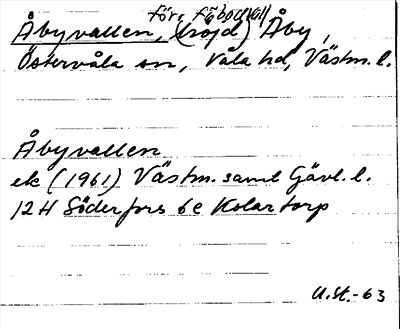 förr fäbodvall
Åbyvallen, (höjd) Åby,
Östervåla sn, Våla hd, Västm. l.
Åbyvallen
ek (1961) Västm. samt Gävl. l.
12H Söderfors 6e Kolartorp
U.St.-63